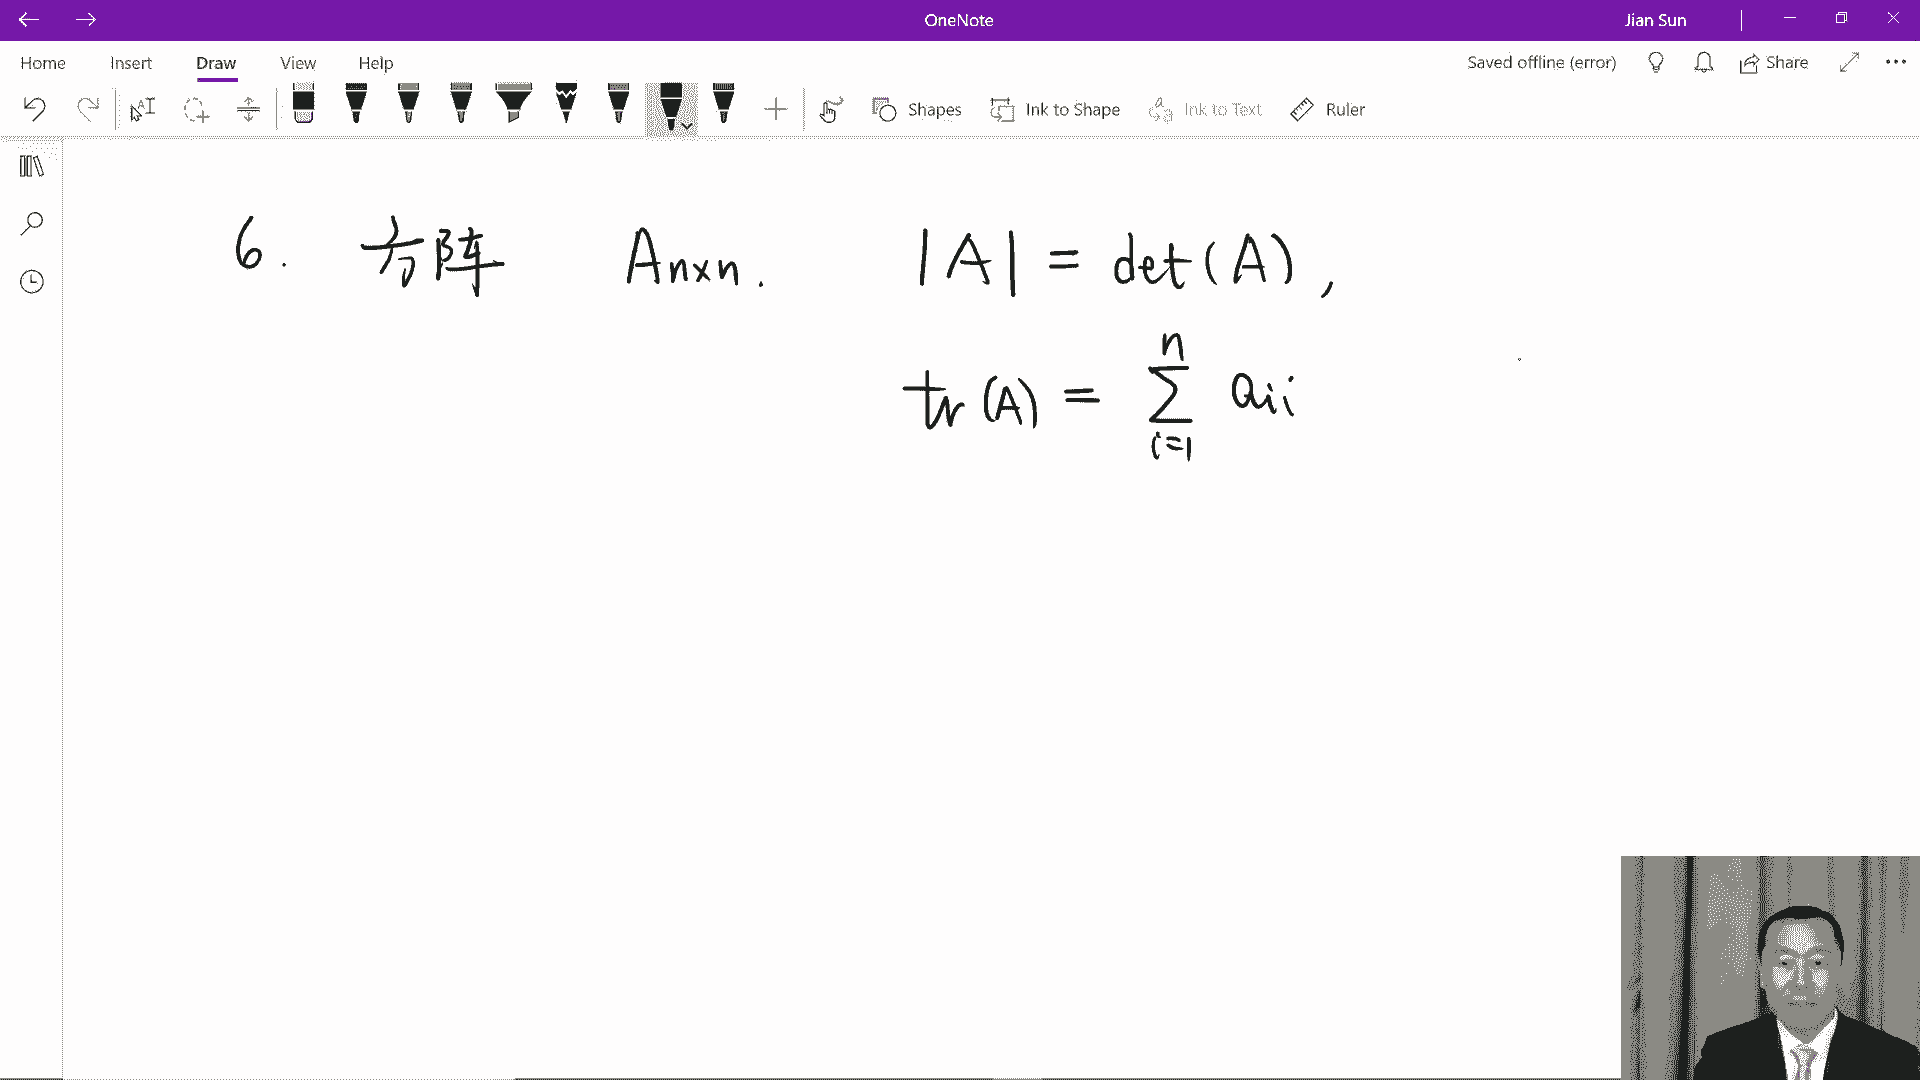 OneNote
Jian Sun
Home Insert Draw View Help
Saved offline (error)
Share
Shapes
Ink to Shape
Ink to Text
Ruler
6. 方阵 Anxn. |A| = det(A),
tr(A) = ∑ⁿᵢ₌₁ aᵢᵢ